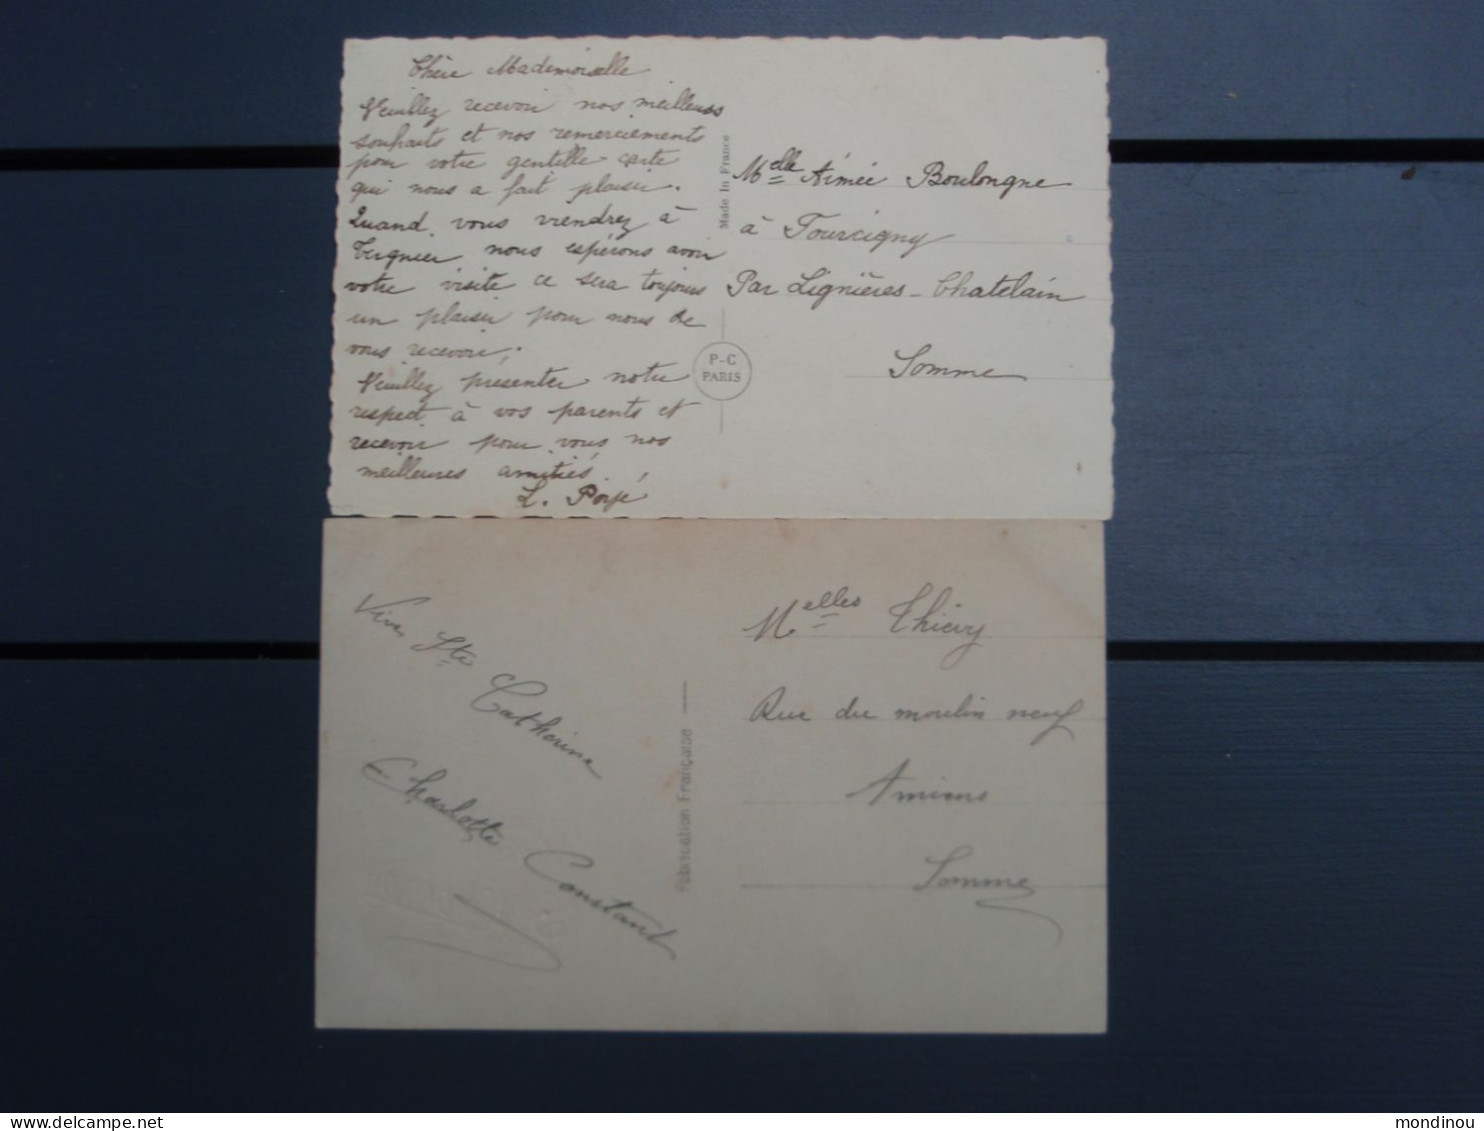 Chère Mademoiselle
Veuillez recevoir nos meilleurs
souhaits et nos remerciements
pour votre gentille carte
qui nous a fait plaisir.
Quand vous viendrez à
Tergnier nous espérons avoir
votre visite ce sera toujours
un plaisir pour nous de
vous recevoir.
Veuillez présenter notre
respect à vos parents et
recevoir pour vous nos
meilleures amitiés.
L.
Made In France
P-C
PARIS
Melle Aimée Boulongne
à Fourcigny
Par Lignières-Chatelain
Somme
Vive Ste Catherine
Charlotte Constant
Fabrication Française
Melles Thiery
Rue du moulin neuf
Amiens
Somme
delcampe.net
mondinou